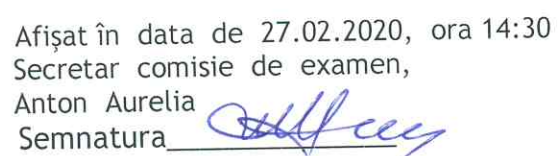 Afișat în data de 27.02.2020, ora 14:30
Secretar comisie de examen,
Anton Aurelia
Semnatura